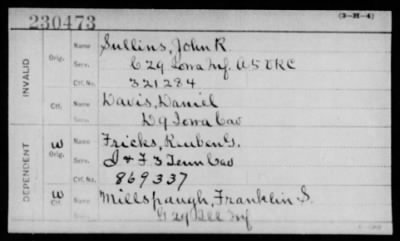 230473
(3-H-4)
INVALID
Orig. Name Sullins, John R
Serv. C 29 Iowa Inf. A 5 VRC
Ctf. No. 321284
Ctf. Name Davis, Daniel
D 9 Iowa Cav
DEPENDENT
W Orig. Name Fricks, Reuben G.
Serv. I & F 3 Tenn Cav
Ctf. No. 869337
W Ctf. Name Millspaugh, Franklin S.
G 29 Ill Inf